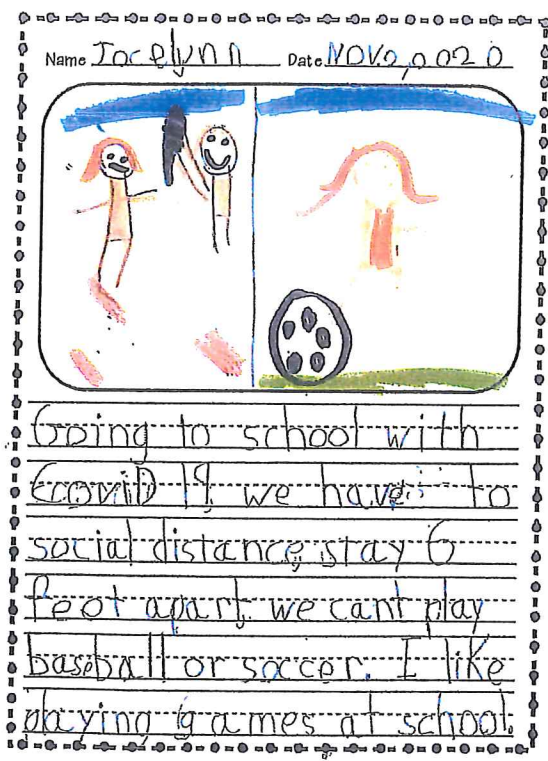 Name Jocelynn Date Nov 2, 2020
Going to school with
CoviD 19 we have to
social distance, stay 6
feot apart. we cant play
baseball or soccer. I like
playing games at school.